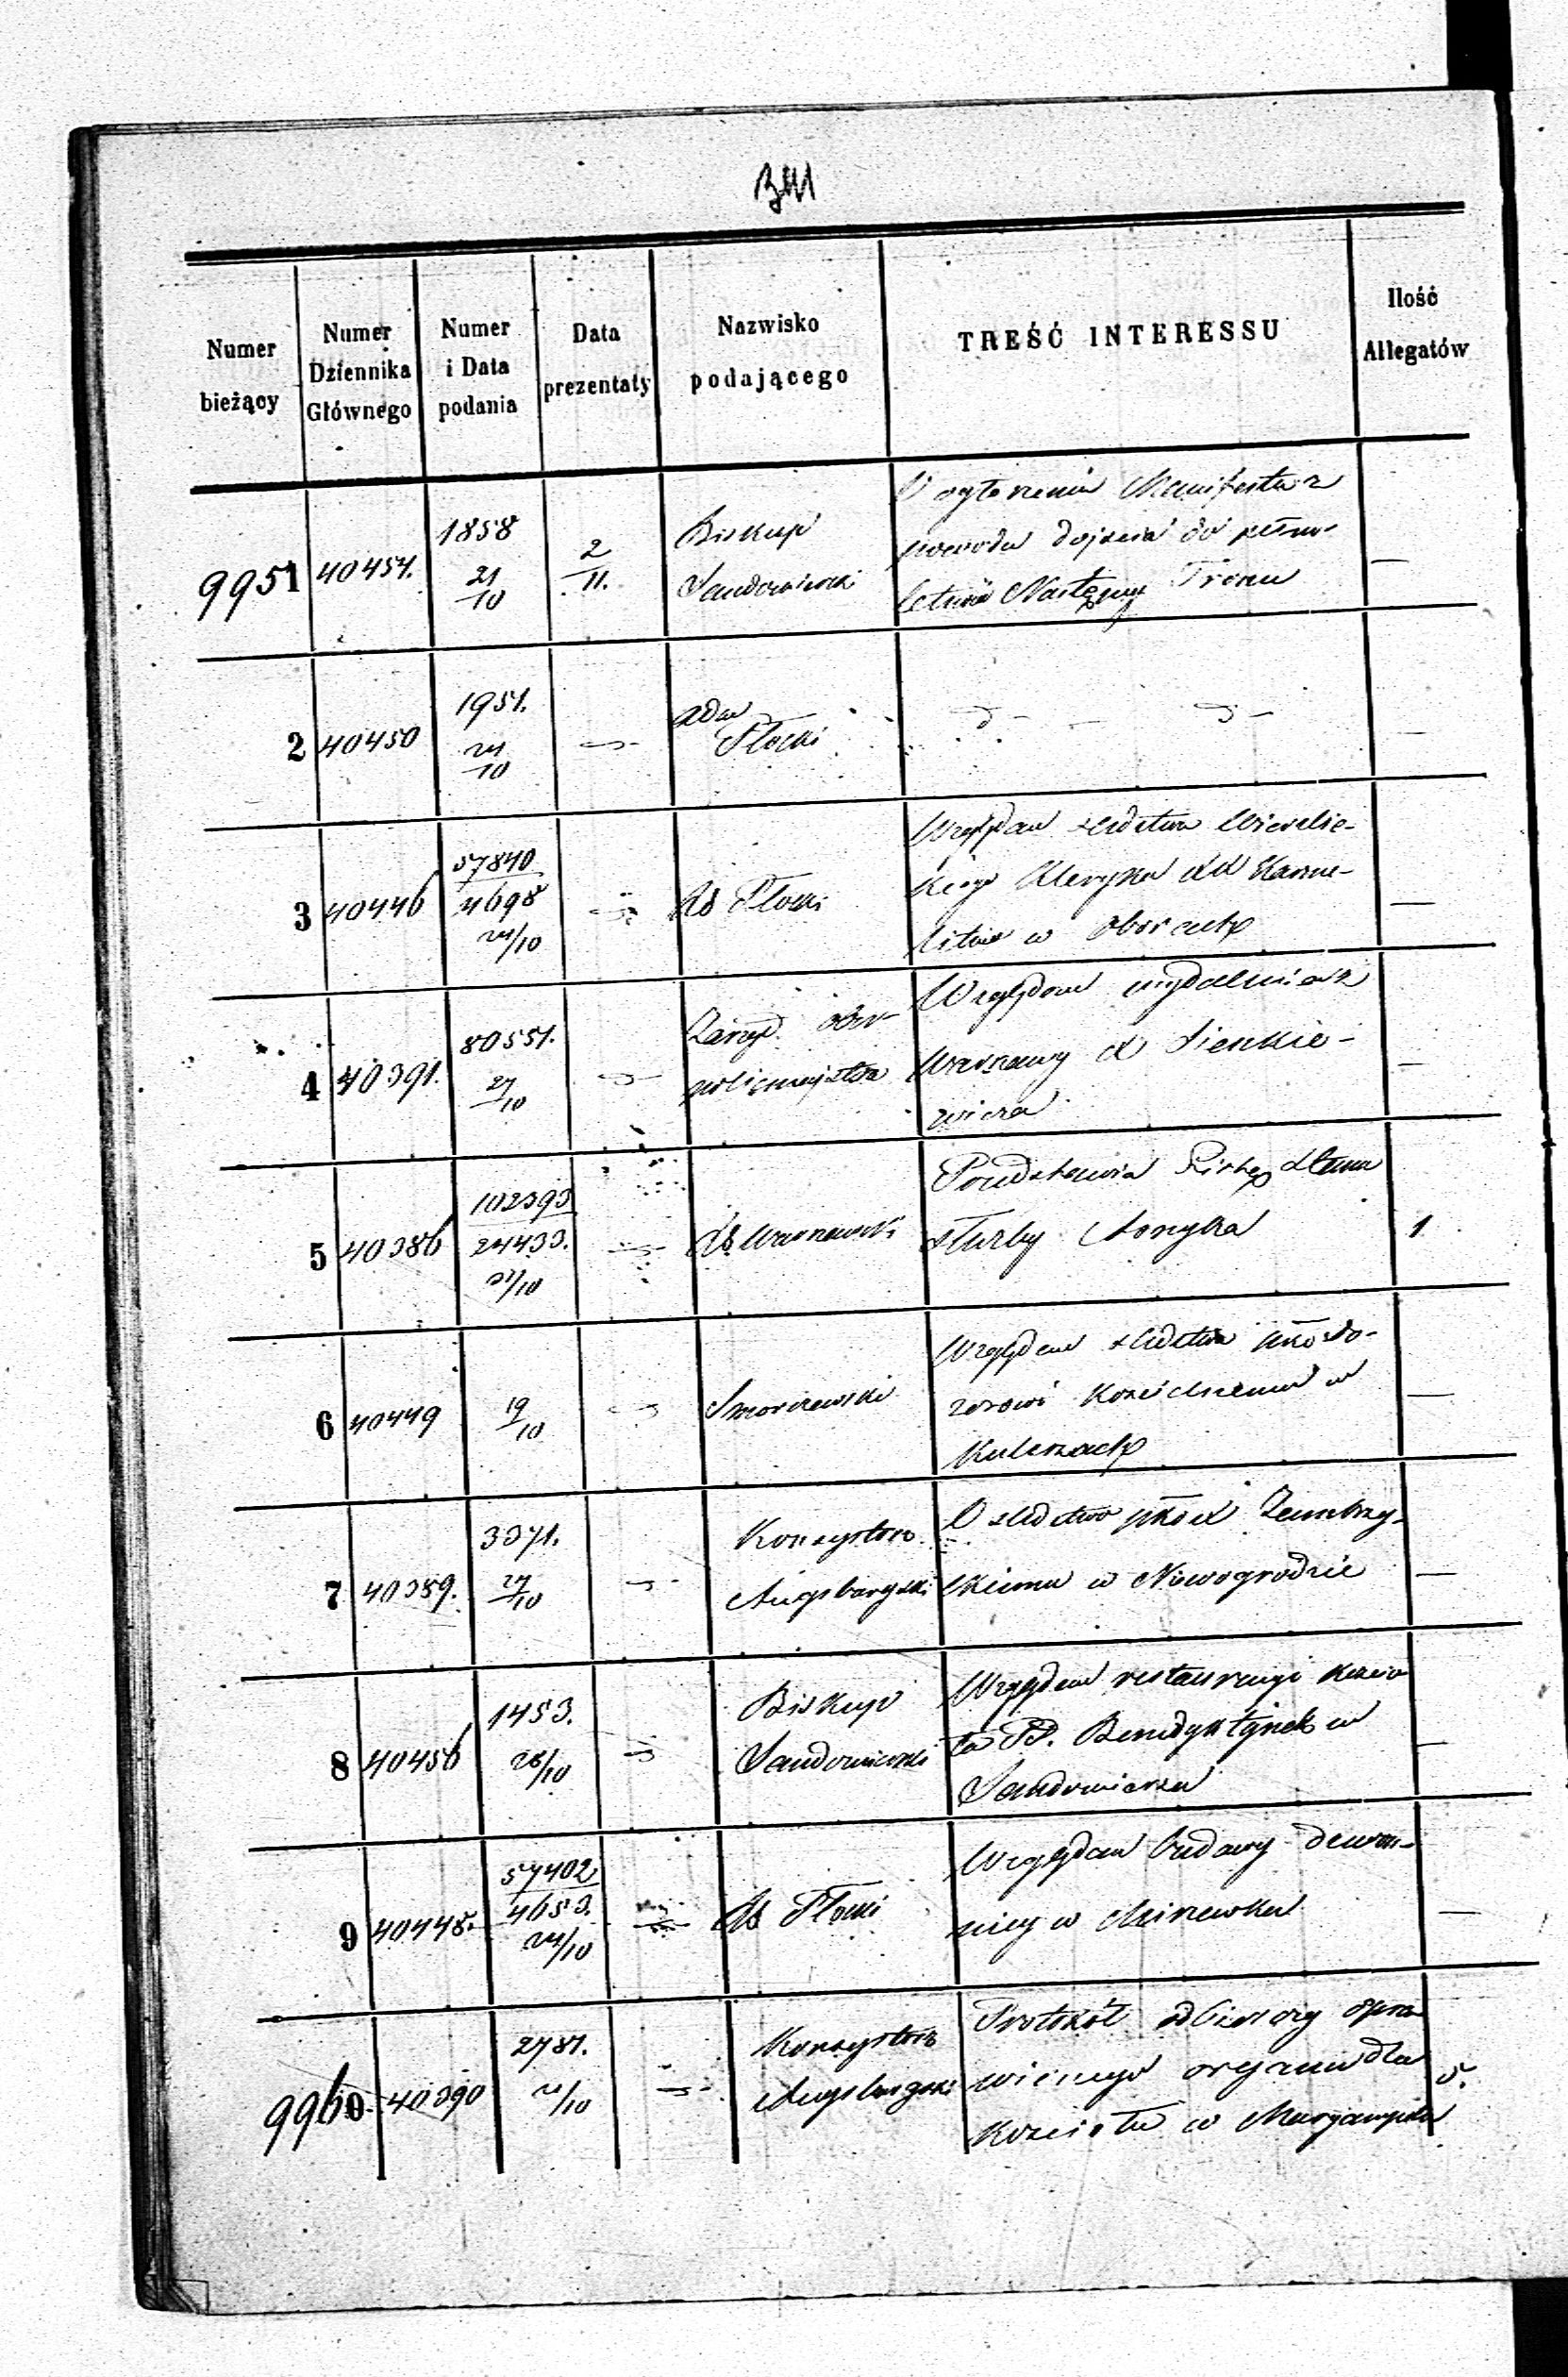 341
Numer bieżący
Numer Dziennika Głównego
Numer i Data podania
Data prezentaty
Nazwisko podającego
TREŚĆ INTERESSU
Ilość Allegatów
9951
40457.
1858
21/10
2/11.
Biskup
Sandomierski
O ogłoszeniu Manifestu z
powodu dojścia do pełno-
letności Następcy Tronu
—
2
40450
1957.
24/10
adm
Płocki
—
3
40446
57840
4698
24/10
RG Płocki
Względem śledztwa
kiego Kleryka XX Karme-
litów w Oborach
—
4
40391.
80557.
27/10
Zarząd ober-
policmajstra
Względem wydalenia z
Warszawy X Sienkie-
wicza
—
5
40386
102393
24433.
31/10
RG Warszawski
Przedstawia Listę stanu
służby
1
6
40449
19/10
Smorczewski
Względem śledztwa pko do-
zorowi Kościelnemu w
Kuleszach
—
7
40389.
3371.
27/10
Konsystorz
Augustowski
O śledztwo pko X Zembrzu-
skiemu w Nowogrodzie
—
8
40456
1453.
26/10
Biskup
Sandomierski
Względem restauracyi kościo
ła PP. Benedyktynek w
Sandomierzu
—
9
40448.
57402
4653.
24/10
RG Płocki
Względem budowy dzwon-
nicy w
—
9960
40390
2787.
21/10
Konsystorz
Augustowski
Protokół odbiorczy spra
wionego organu dla
Kościoła w Maryampolu
5.